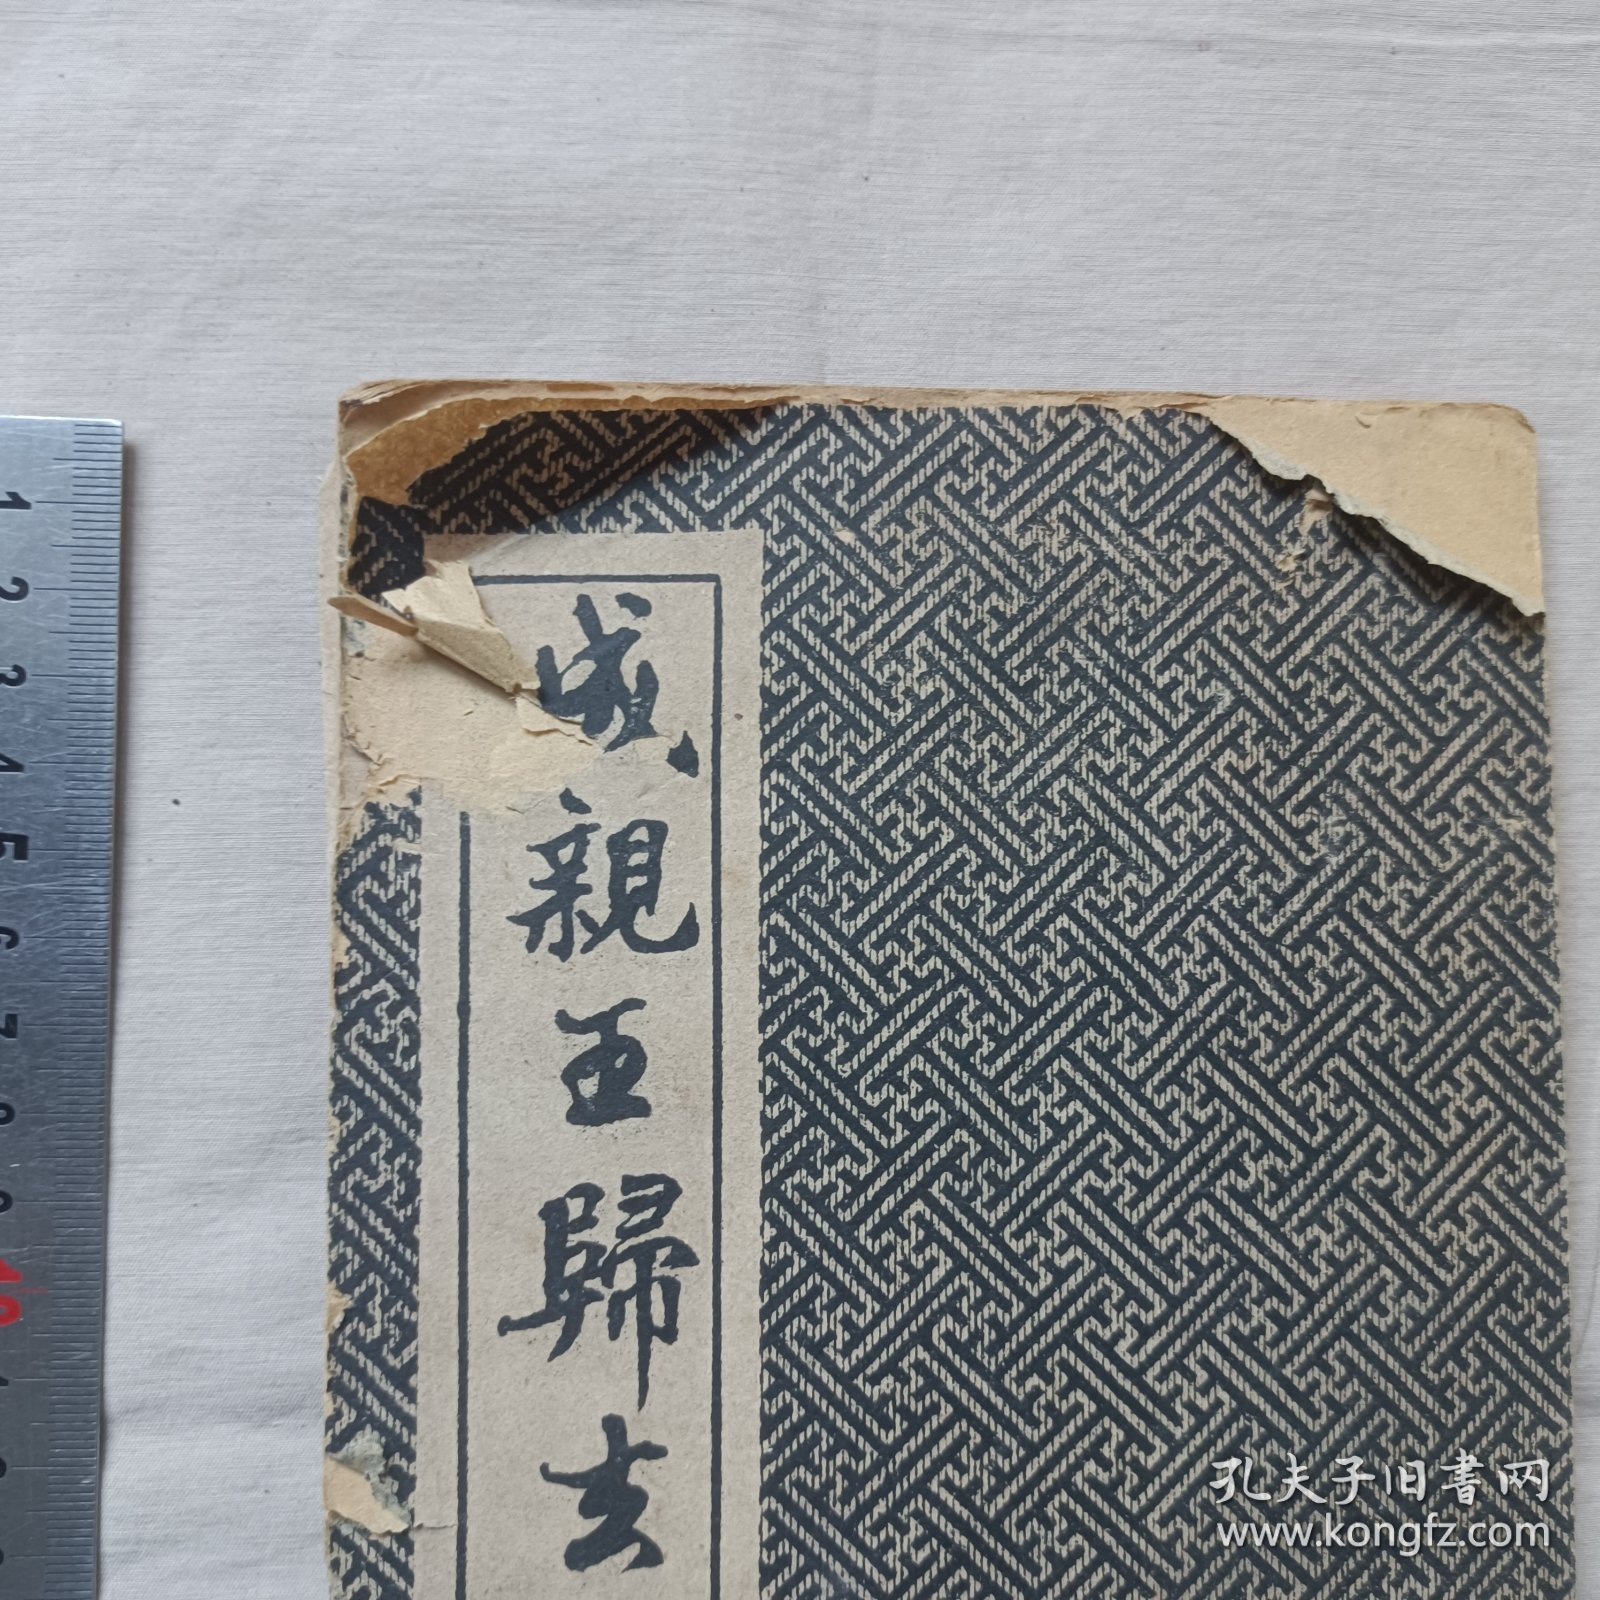 成親王歸去
1
2
3
4
5
6
7
8
9
10
1
孔夫子旧書网
www.kongfz.com